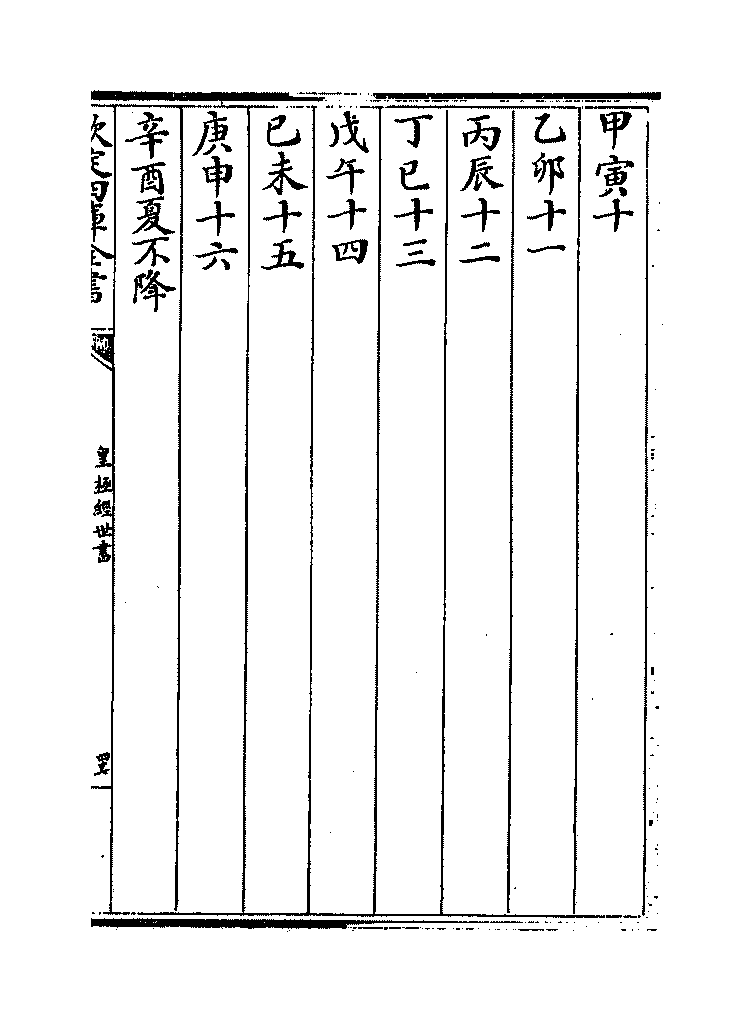 甲寅十
乙卯十一
丙辰十二
丁巳十三
戊午十四
己未十五
庚申十六
辛酉夏不降
欽定四庫全書
皇極經世書